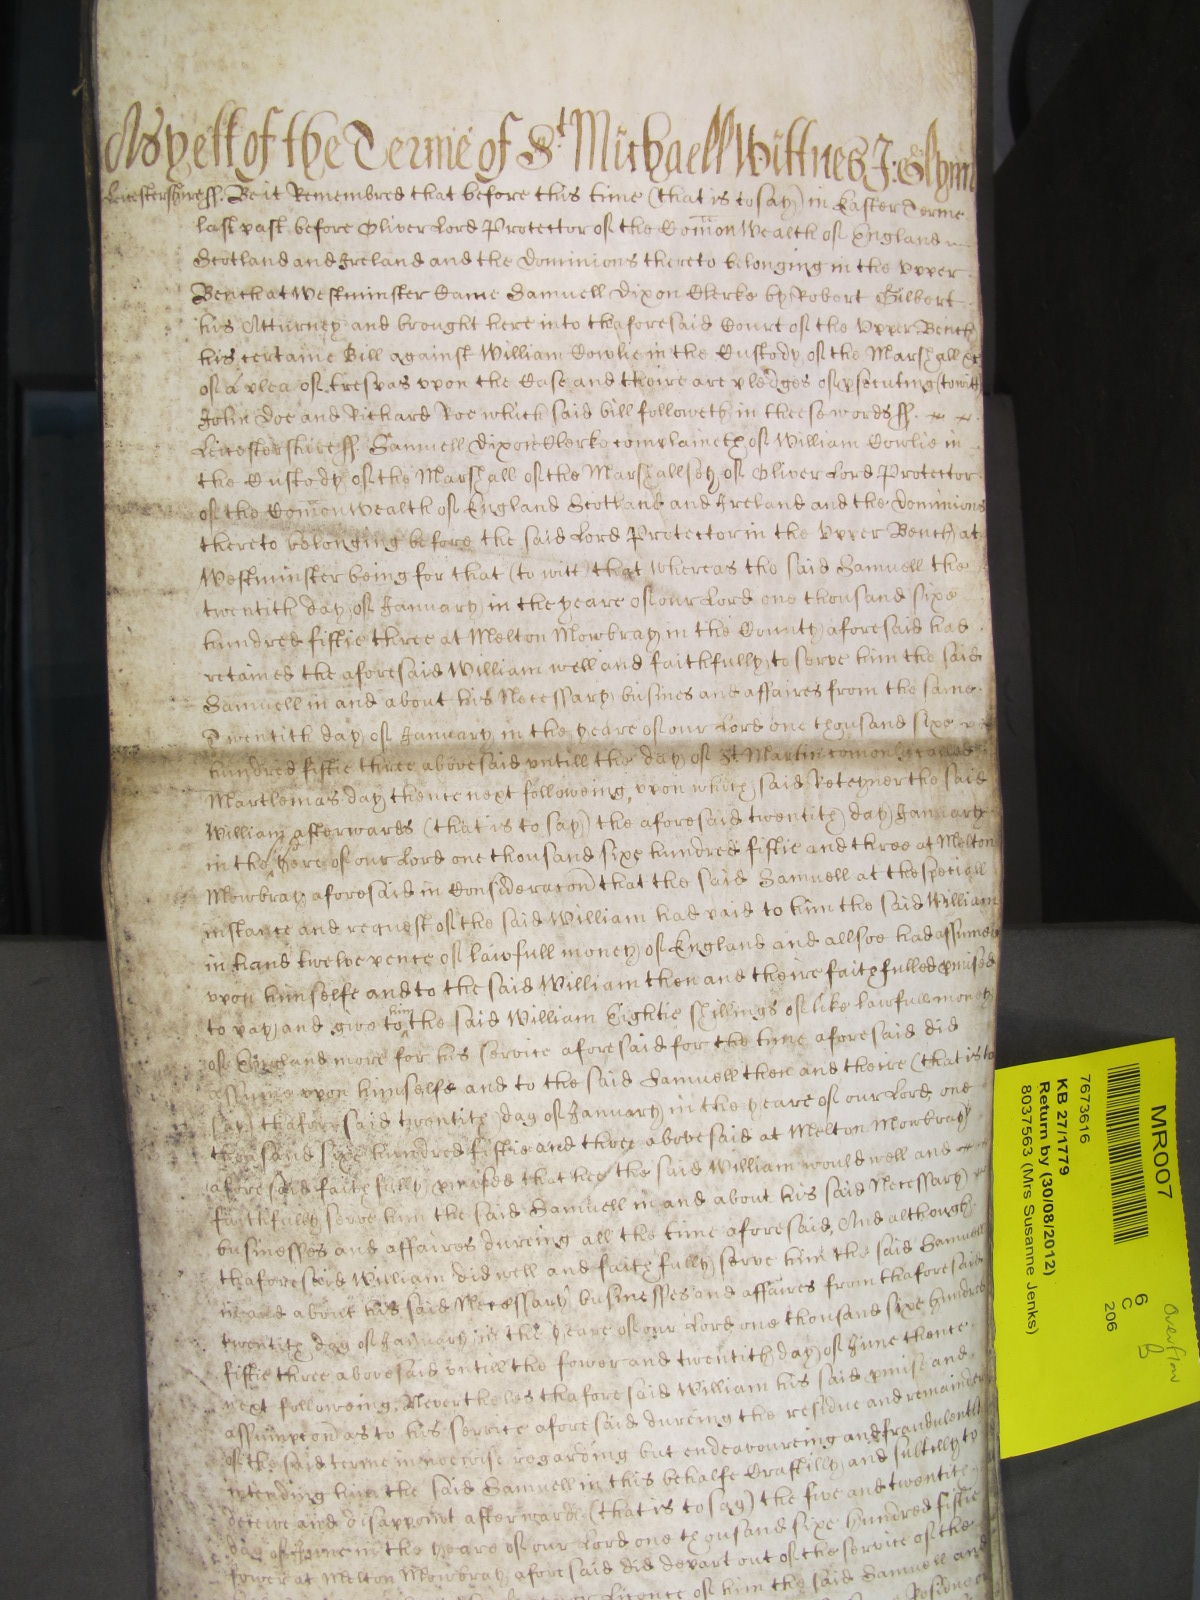 As yett of the Terme of St Michaell Wittnes J: Glynn
Leicestershire ss. Be it Remembred that before this time (that is to say) in Easter Terme
last past before Oliver Lord Protector of the Comon Wealth of England
Scotland and Ireland and the Dominions thereto belonging in the Upper
Bench at Westminster Came Samuell Dixon Clerke by Robert Gilbert
his Atturney and brought here into thaforesaid Court of the Upper Bench
his certaine Bill against William Cowlie in the Custody of the Marshall &c
of a plea of trespas upon the Case and theire are pledges of psecuting (to witt)
John Doe and Richard Roe which said bill followeth in theese words ss.
Leicestershire ss. Samuell Dixon Clerke complaineth of William Cowlie in
the Custody of the Marshall of the Marshallsey of Oliver Lord Protector
of the Comonwealth of England Scotland and Ireland and the Dominions
thereto belonging before the said Lord Protector in the Upper Bench at
Westminster being for that (to witt) that whereas the said Samuell the
twentith day of January in the yeare of our Lord one thousand sixe
hundred fiftie three at Melton Mowbray in the County aforesaid had
retained the aforesaid William well and faithfully to serve him the said
Samuell in and about his Necessary busines and affaires from the same
Twentith day of January in the yeare of our Lord one thousand sixe
hundred fiftie three abovesaid untill the day of St Martin comonly called
Martlemas day thence next followeing, upon which said Reteyner the said
William afterwards (that is to say) the aforesaid twentith day January
in the yeare of our Lord one thousand sixe hundred fiftie and three at Melton
Mowbray aforesaid in Consideracon that the said Samuell at the speciall
instance and request of the said William had paid to him the said William
in hand twelve pence of lawfull money of England and allsoe had assumed
upon himselfe and to the said William then and theire faithfulled pmised
to pay and give to him the said William Eightie shillings of like lawfull money
of England more for his service aforesaid for the time aforesaid did
assume upon himselfe and to the said Samuell then and theire (that is to
say) thaforesaid twentith day of January in the yeare of our Lord one
thousand sixe hundred fiftie and three abovesaid at Melton Mowbray
aforesaid faithfully pmised that hee the said William would well and
faithfully serve him the said Samuell in and about his said Necessary
businesses and affaires dureing all the time aforesaid, And although
thaforesaid William did well and faithfully serve him the said Samuell
in and about his said Necessary businesses and affaires from thaforesaid
twentith day of January in the yeare of our Lord one thousand sixe hundred
fiftie three abovesaid untill the fower and twentith day of June thence
next followeing; Neverthelesse thaforesaid William his said pmise and
assumpcon as to his service aforesaid dureing the residue and remainder
of the said terme in noe wise regarding but endeavoureing and fraudulently
intending him the said Samuell in this behalfe Craftilly and subtilly to
deceive and disappoint afterwards (that is to say) the five and twentith
day of June in the yeare of our Lord one thousand sixe hundred fiftie
fower at Melton Mowbray aforesaid did depart out of the service of the
Licence of him the said Samuell and
Residue
MR007
7673616
KB 27/1779
Return by (30/08/2012)
8037563 (Mrs Susanne Jenks)
6
C
206
Overflow